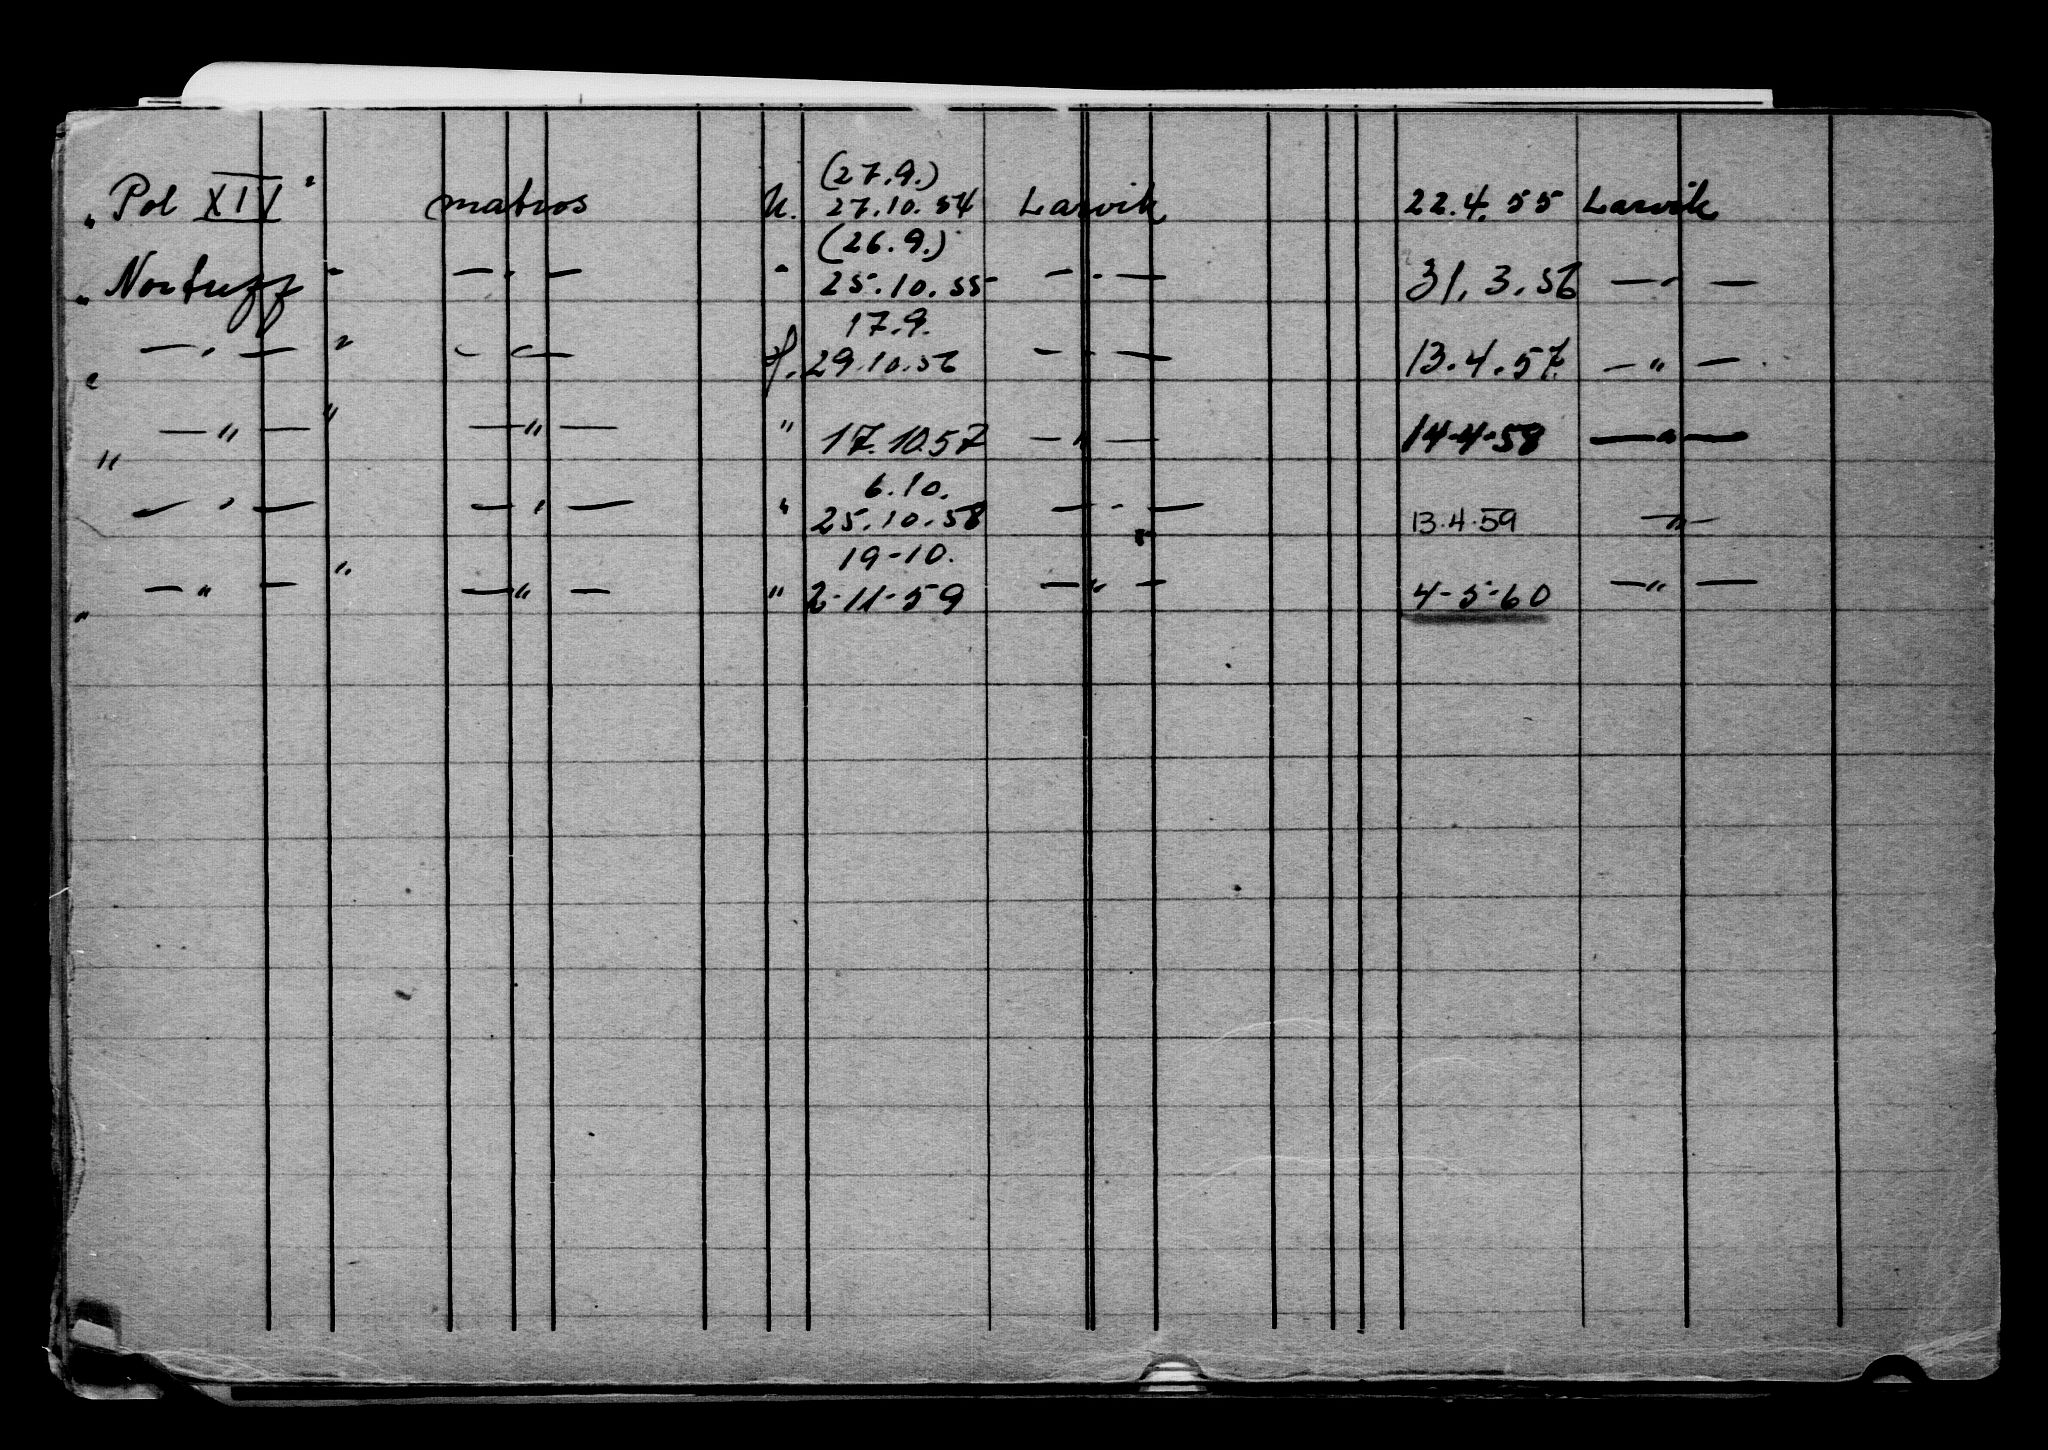 (27.9.)
„Pol XIV" matros U. 27.10.54 Larvik 22.4.55 Larvik
(26.9.)
„Nortuff" — " — " 25.10.55 — " — 31.3.56 — " —
17.9.
„ — " — " — " — f. 29.10.56 — " — 13.4.57 — " —
„ — " — " — " — " 17.10.57 — " — 14-4-58 — " —
6.10.
— " — — " — " 25.10.58 — " — 13.4.59 — " —
19-10.
„ — " — " — " — " 2-11-59 — " — 4-5-60 — " —